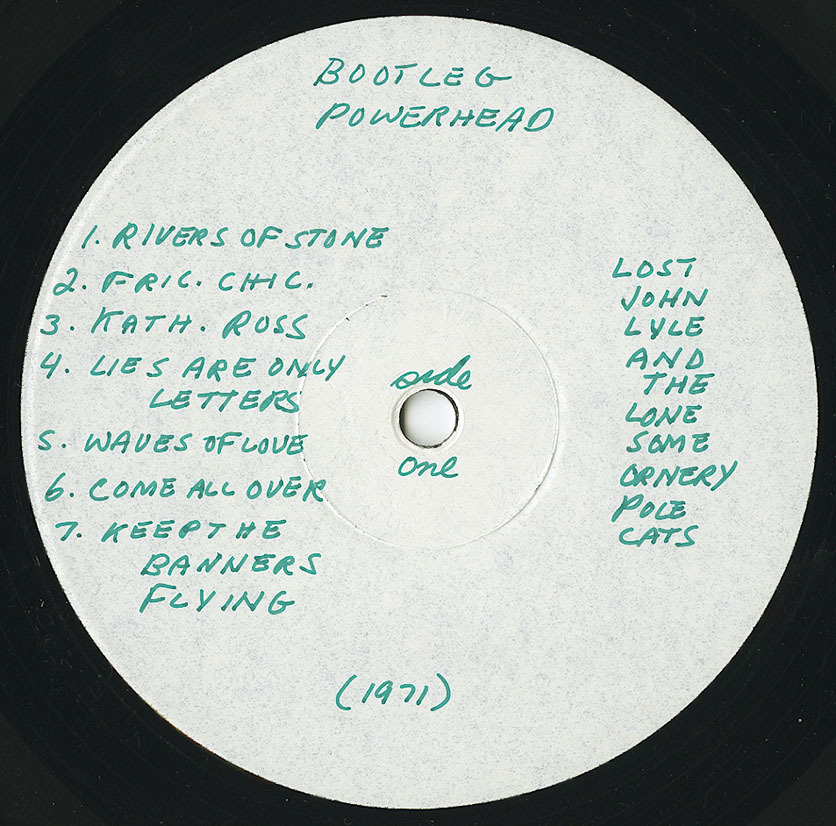 BOOTLEG
POWERHEAD
1. RIVERS OF STONE
2. FRIC. CHIC.
3. KATH. ROSS
4. LIES ARE ONLY
LETTERS
5. WAVES OF LOVE
6. COME ALL OVER
7. KEEP THE
BANNERS
FLYING
side
one
LOST
JOHN
LYLE
AND
THE
LONE
SOME
ORNERY
POLE
CATS
(1971)